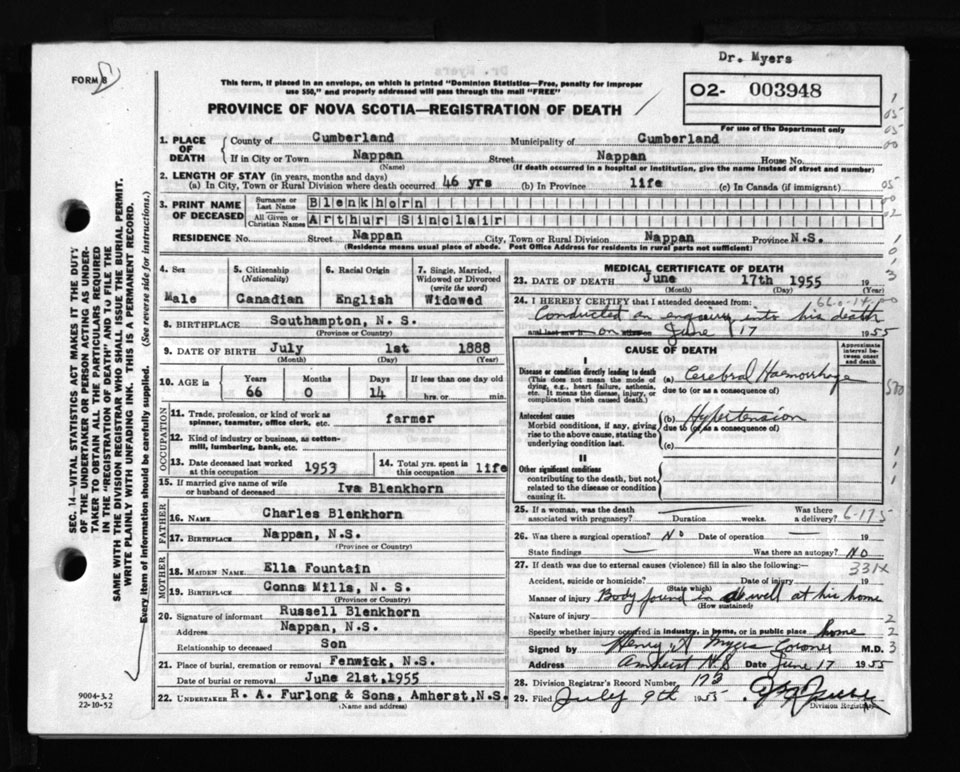 Dr. Myers
FORM 8
This form, if placed in an envelope, on which is printed "Dominion Statistics—Free, penalty for improper
use $50," and properly addressed will pass through the mail "FREE"
PROVINCE OF NOVA SCOTIA—REGISTRATION OF DEATH
02- 003948
For use of the Department only
1. PLACE OF DEATH
County of Cumberland Municipality of Cumberland
If in City or Town Nappan Street Nappan House No.
(Name) (If death occurred in a hospital or institution, give the name instead of street and number)
2. LENGTH OF STAY (in years, months and days)
(a) In City, Town or Rural Division where death occurred 46 yrs (b) In Province life (c) In Canada (if immigrant)
3. PRINT NAME OF DECEASED
Surname or Last Name Blenkhorn
All Given or Christian Names Arthur Sinclair
RESIDENCE No. Street Nappan City, Town or Rural Division Nappan Province N.S.
(Residence means usual place of abode. Post Office Address for residents in rural parts not sufficient)
4. Sex
Male
5. Citizenship
(Nationality)
Canadian
6. Racial Origin
English
7. Single, Married,
Widowed or Divorced
(write the word)
Widowed
8. BIRTHPLACE Southampton, N. S.
(Province or Country)
9. DATE OF BIRTH July 1st 1888
(Month) (Day) (Year)
10. AGE in Years Months Days If less than one day old
66 0 14 hrs. or min.
OCCUPATION
11. Trade, profession, or kind of work as
spinner, teamster, office clerk, etc. farmer
12. Kind of industry or business, as cotton-
mill, lumbering, bank, etc.
13. Date deceased last worked
at this occupation 1953
14. Total yrs. spent in
this occupation life
15. If married give name of wife
or husband of deceased Iva Blenkhorn
FATHER
16. NAME Charles Blenkhorn
17. BIRTHPLACE Nappan, N.S.
(Province or Country)
MOTHER
18. MAIDEN NAME Ella Fountain
19. BIRTHPLACE Conns Mills, N. S.
(Province or Country)
20. Signature of informant Russell Blenkhorn
Address Nappan, N.S.
Relationship to deceased Son
21. Place of burial, cremation or removal Fenwick, N.S.
Date of burial or removal June 21st, 1955
22. UNDERTAKER R. A. Furlong & Sons, Amherst, N.S.
(Name and address)
MEDICAL CERTIFICATE OF DEATH
23. DATE OF DEATH June 17th 1955 19
(Month) (Day) (Year)
24. I HEREBY CERTIFY that I attended deceased from:
Conducted an enquiry into his death
on June 17 1955
CAUSE OF DEATH
Approximate interval between onset and death
I
Disease or condition directly leading to death
(This does not mean the mode of
dying, e.g., heart failure, asthenia,
etc. It means the disease, injury, or
complication which caused death.)
(a) Cerebral Haemorrhage
due to (or as a consequence of)
Antecedent causes
Morbid conditions, if any, giving
rise to the above cause, stating the
underlying condition last.
(b) Hypertension
due to (or as a consequence of)
(c)
II
Other significant conditions
contributing to the death, but not
related to the disease or condition
causing it.
25. If a woman, was the death
associated with pregnancy? Duration weeks. Was there
a delivery?
26. Was there a surgical operation? No Date of operation 19
State findings Was there an autopsy? No
27. If death was due to external causes (violence) fill in also the following:—
331X
Accident, suicide or homicide? Date of injury 19
(State which)
Manner of injury Body found in well at his home
(How sustained)
Nature of injury
Specify whether injury occurred in industry, in home, or in public place home
Signed by Henry A Myers Coroner M.D.
Address Amherst N.S Date June 17 1955
28. Division Registrar's Record Number 173
29. Filed July 9th 1955
Division Registrar
SEC. 14—VITAL STATISTICS ACT MAKES IT THE DUTY
OF THE UNDERTAKER OR PERSON ACTING AS UNDER-
TAKER TO OBTAIN ALL THE PARTICULARS REQUIRED
IN THE "REGISTRATION OF DEATH" AND TO FILE THE
SAME WITH THE DIVISION REGISTRAR WHO SHALL ISSUE THE BURIAL PERMIT.
WRITE PLAINLY WITH UNFADING INK. THIS IS A PERMANENT RECORD.
Every item of information should be carefully supplied. (See reverse side for instructions.)
9004-3.2
22-10-52